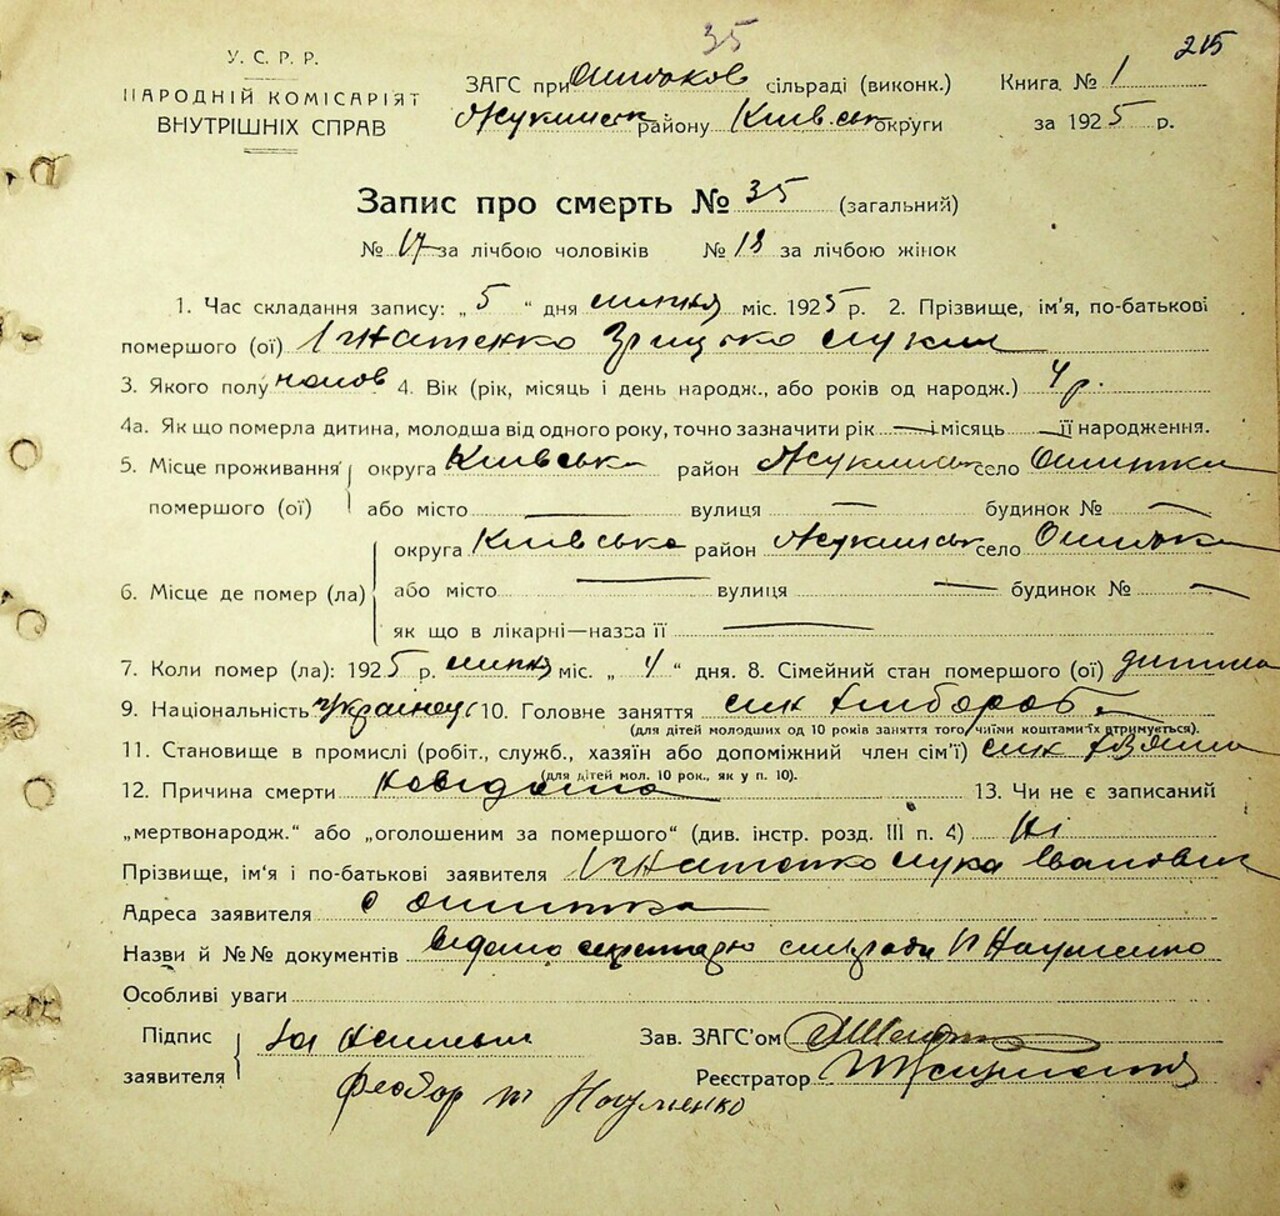 35
215
У. С. Р. Р.
НАРОДНІЙ КОМІСАРІЯТ
ВНУТРІШНІХ СПРАВ
ЗАГС при сільраді (виконк.)
району Київськ округи
Книга № 1
за 1925 р.
Запис про смерть № 35 (загальний)
№ 17 за лічбою чоловіків № 18 за лічбою жінок
1. Час складання запису: „ 5 “ дня липня міс. 1925 р. 2. Прізвище, ім'я, по-батькові
помершого (ої) Ігнатенко Грицько Луки
3. Якого полу чолов 4. Вік (рік, місяць і день народж., або років од народж.) 4 р.
4а. Як що померла дитина, молодша від одного року, точно зазначити рік — і місяць — її народження.
5. Місце проживання помершого (ої) округа Київська район село
або місто — вулиця — будинок № —
6. Місце де помер (ла) округа Київська район село
або місто — вулиця — будинок № —
як що в лікарні—назва її —
7. Коли помер (ла): 1925 р. липня міс. „ 4 “ дня. 8. Сімейний стан помершого (ої) дитина
9. Національність 10. Головне заняття син хлібороб
(для дітей молодших од 10 років заняття того, чиїми коштами їх втримується).
11. Становище в промислі (робіт., служб., хазяїн або допоміжний член сім'ї) син
(для дітей мол. 10 рок., як у п. 10).
12. Причина смерти 13. Чи не є записаний
„мертвонародж.“ або „оголошеним за помершого“ (див. інстр. розд. III п. 4) Ні
Прізвище, ім'я і по-батькові заявителя Ігнатенко Лука Іванович
Адреса заявителя с
Назви й №№ документів сільради Науменко
Особливі уваги
Підпис заявителя
Зав. ЗАГС'ом
Реєстратор
Федор Науменко